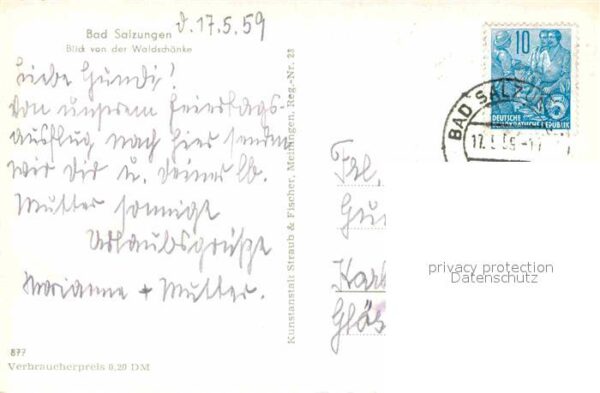 d. 17.5.59
Bad Salzungen
Blick von der Waldschänke
Liebe Gundi!
Von unserem Feiertags-
ausflug nach hier senden
wir Dir u. Deiner lb.
Mutter sonnige
Urlaubsgrüße
Marianne + Mutter.
877
Verbraucherpreis 0,20 DM
Kunstanstalt Straub & Fischer, Meiningen, Reg.-Nr. 23
10
DEUTSCHE
DEMOKRATISCHE REPUBLIK
BAD SALZUN
17.5.59-17
Frl.
Gu
Karl
Gläs
privacy protection
Datenschutz